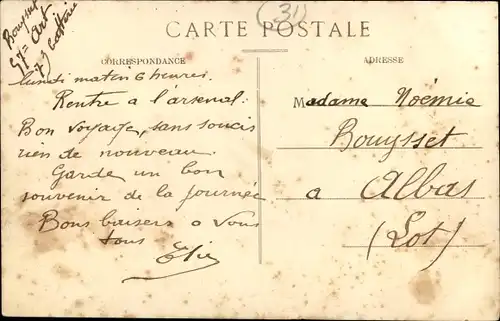 Bouysset
57e Art
7e Batterie
(31)
CARTE POSTALE
CORRESPONDANCE
ADRESSE
Lundi matin 6 heures.
Rentre a l'arsenal.
Bon voyage, sans soucis
rien de nouveau.
Garde un bon
souvenir de la journée
Bons baisers a vous
tous
Elie
Madame Noémie
Bouysset
a Albas
(Lot)